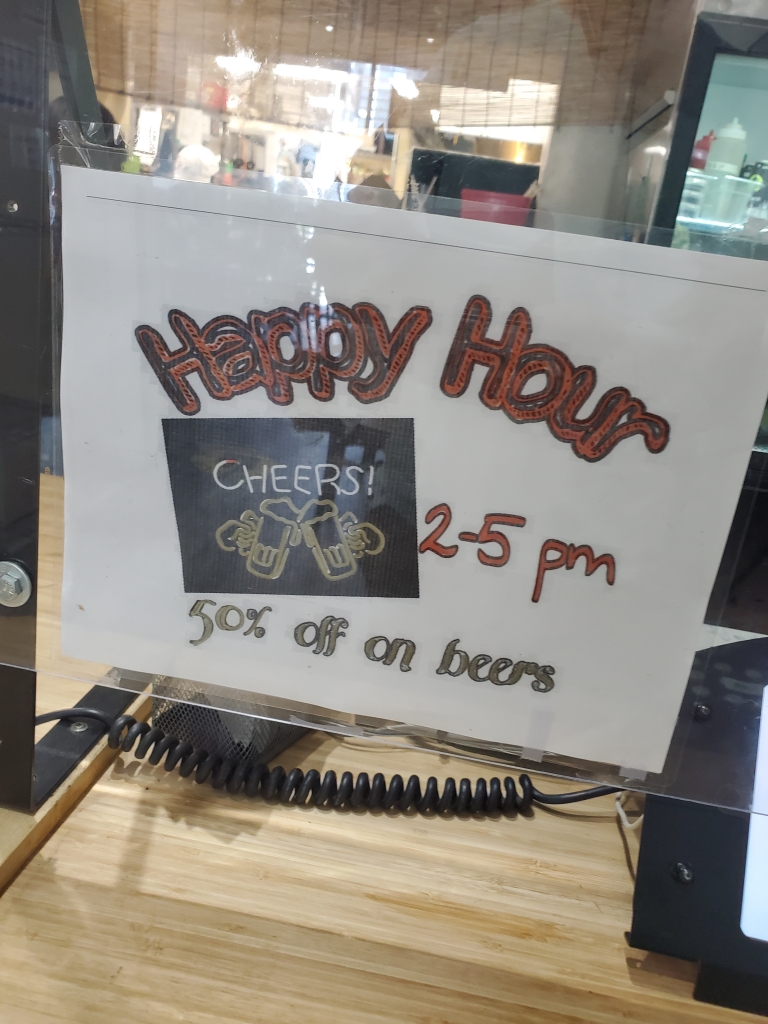 Happy Hour
CHEERS!
2-5 pm
50% off on beers